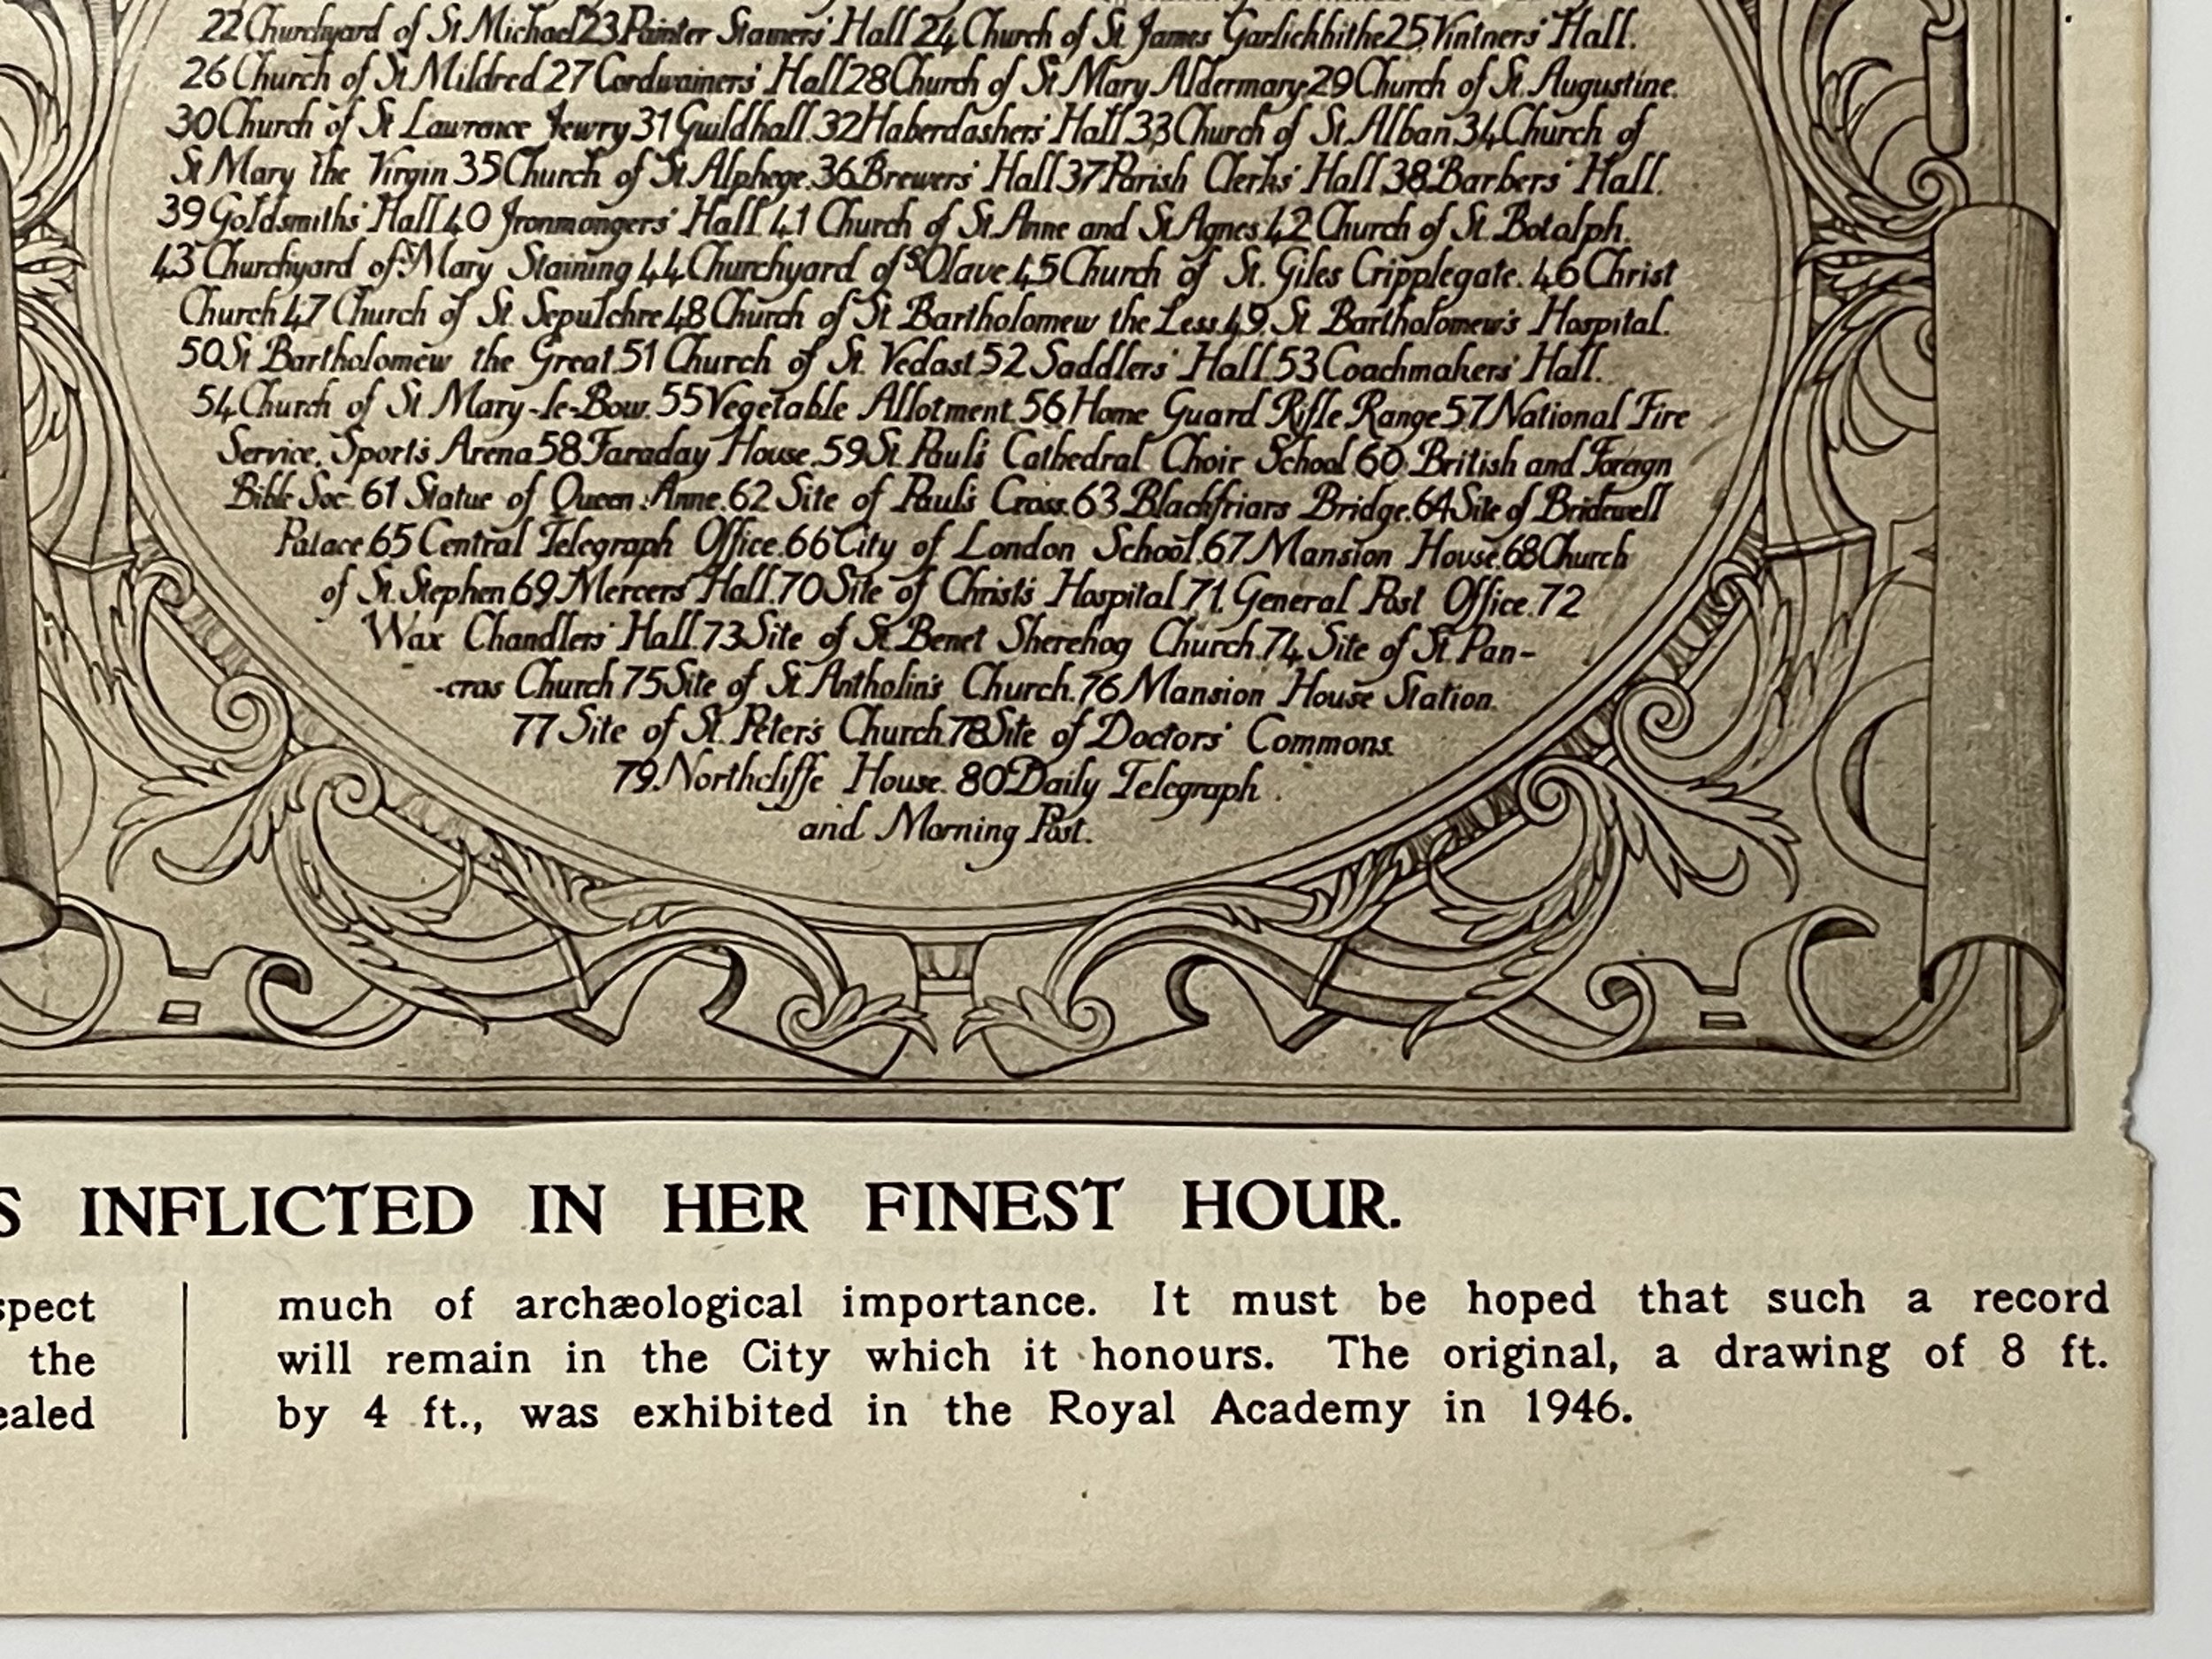 22 Churchyard of St Michael 23 Painter Stainers' Hall 24 Church of St. James Garlickhithe 25 Vintners' Hall.
26 Church of St Mildred 27 Cordwainers' Hall 28 Church of St Mary Aldermary 29 Church of St. Augustine.
30 Church of St Lawrence Jewry 31 Guildhall. 32 Haberdashers' Hall 33 Church of St. Alban. 34 Church of
St Mary the Virgin 35 Church of St. Alphege. 36 Brewers' Hall 37 Parish Clerks' Hall 38 Barbers' Hall.
39 Goldsmiths' Hall 40 Ironmongers' Hall. 41 Church of St. Anne and St Agnes. 42 Church of St. Botolph.
43 Churchyard of St Mary Staining 44 Churchyard of St Olave. 45 Church of St. Giles Cripplegate. 46 Christ
Church 47 Church of St. Sepulchre 48 Church of St. Bartholomew the Less. 49. St. Bartholomew's Hospital.
50 St Bartholomew the Great. 51 Church of St. Vedast. 52 Saddlers' Hall. 53 Coachmakers' Hall.
54 Church of St. Mary-le-Bow. 55 Vegetable Allotment. 56 Home Guard Rifle Range 57 National Fire
Service, Sports Arena 58 Faraday House. 59 St. Paul's Cathedral Choir School 60. British and Foreign
Bible Soc. 61 Statue of Queen Anne. 62 Site of Paul's Cross. 63 Blackfriars Bridge. 64 Site of Bridewell
Palace. 65 Central Telegraph Office. 66 City of London School. 67 Mansion House. 68 Church
of St. Stephen 69. Mercers' Hall. 70 Site of Christ's Hospital 71. General Post Office. 72
Wax Chandlers' Hall. 73 Site of St. Benet Sherehog Church. 74 Site of St Pan-
-cras Church 75 Site of St. Antholin's Church. 76 Mansion House Station.
77 Site of St. Peter's Church. 78 Site of Doctors' Commons.
79. Northcliffe House. 80 Daily Telegraph
and Morning Post.
S INFLICTED IN HER FINEST HOUR.
spect
the
ealed
much of archæological importance. It must be hoped that such a record
will remain in the City which it honours. The original, a drawing of 8 ft.
by 4 ft., was exhibited in the Royal Academy in 1946.